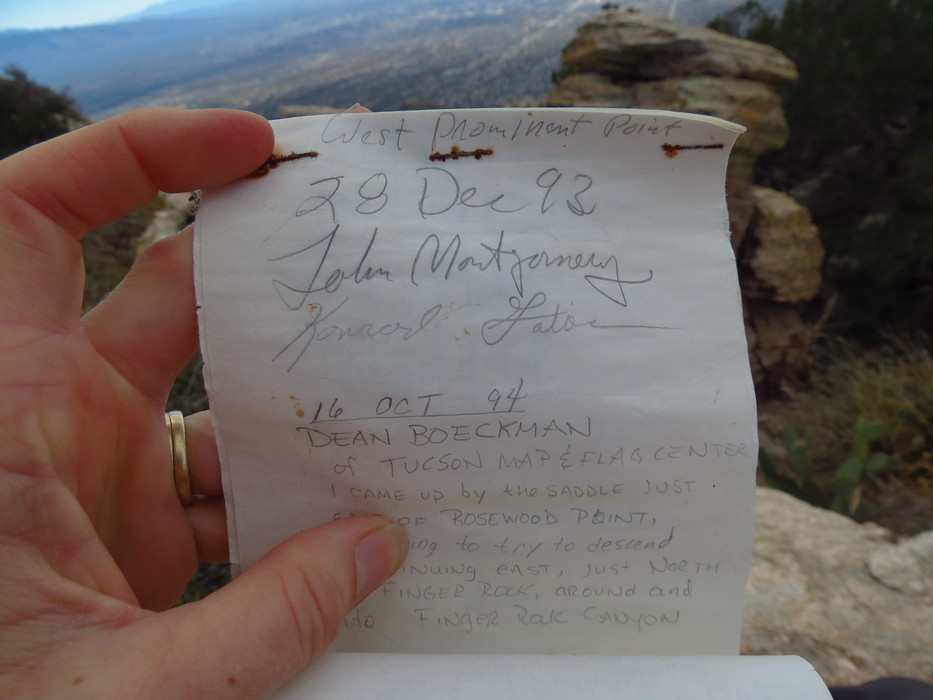 West Prominent Point
28 Dec 93
John Montgomery
16 OCT 94
DEAN BOECKMAN
of TUCSON MAP & FLAG CENTER
I CAME UP by the SADDLE JUST
OF ROSEWOOD POINT,
to try to descend
EAST, JUST NORTH
FINGER ROCK, AROUND and
FINGER Rock CANYON